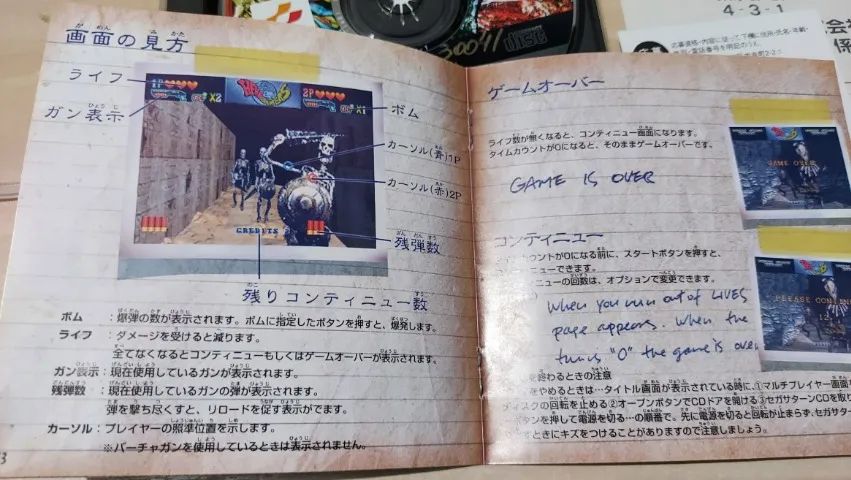 画面の見方
ライフ
ガン表示
ボム
カーソル(青)1P
カーソル(赤)2P
残弾数
残りコンティニュー数
1P
X2
2P
CREDITS
ボム :爆弾の数が表示されます。ボムに指定したボタンを押すと、爆発します。
ライフ :ダメージを受けると減ります。
全てなくなるとコンティニューもしくはゲームオーバーが表示されます。
ガン表示:現在使用しているガンが表示されます。
残弾数 :現在使用しているガンの弾が表示されます。
弾を撃ち尽くすと、リロードを促す表示がでます。
カーソル:プレイヤーの照準位置を示します。
※バーチャガンを使用しているときは表示されません。
3
ゲームオーバー
ライフ数が無くなると、コンティニュー画面になります。
タイムカウントが0になると、そのままゲームオーバーです。
GAME IS OVER
GAME OVER
コンティニュー
カウントが0になる前に、スタートボタンを押すと、
ニューできます。
ニューの回数は、オプションで変更できます。
When you run out of LIVES
page appears. When the
turns "0" the game is over
PLEASE CONTINUE
を終わるときの注意
をやめるときは…タイトル画面が表示されている時に、①マルチプレイヤー画面
ディスクの回転を止める②オープンボタンでCDドアを開ける③セガサターンCDを取り
ボタンを押して電源を切る…の順番で。先に電源を切ると回転が止まらず、セガサター
すときにキズをつけることがありますので注意しましょう。
disc
4-3-1